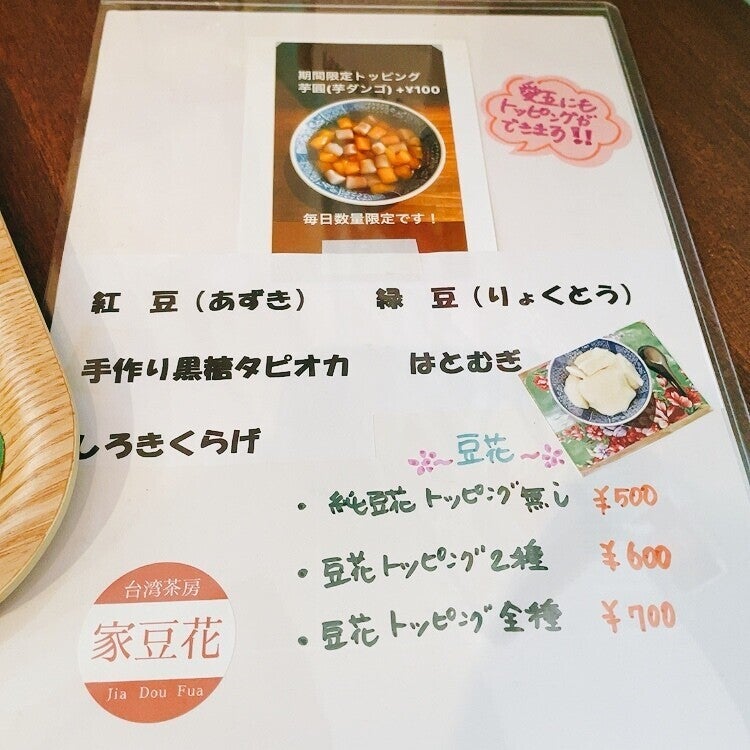 期間限定トッピング
芋圓(芋ダンゴ)+¥100
毎日数量限定です!
愛玉にも
トッピングが
できます!!
紅 豆(あずき) 緑 豆(りょくとう)
手作り黒糖タピオカ はとむぎ
しろきくらげ
~豆花~
・純豆花トッピング無し ¥500
・豆花トッピング2種 ¥600
・豆花トッピング全種 ¥700
台湾茶房
家豆花
Jia Dou Fua